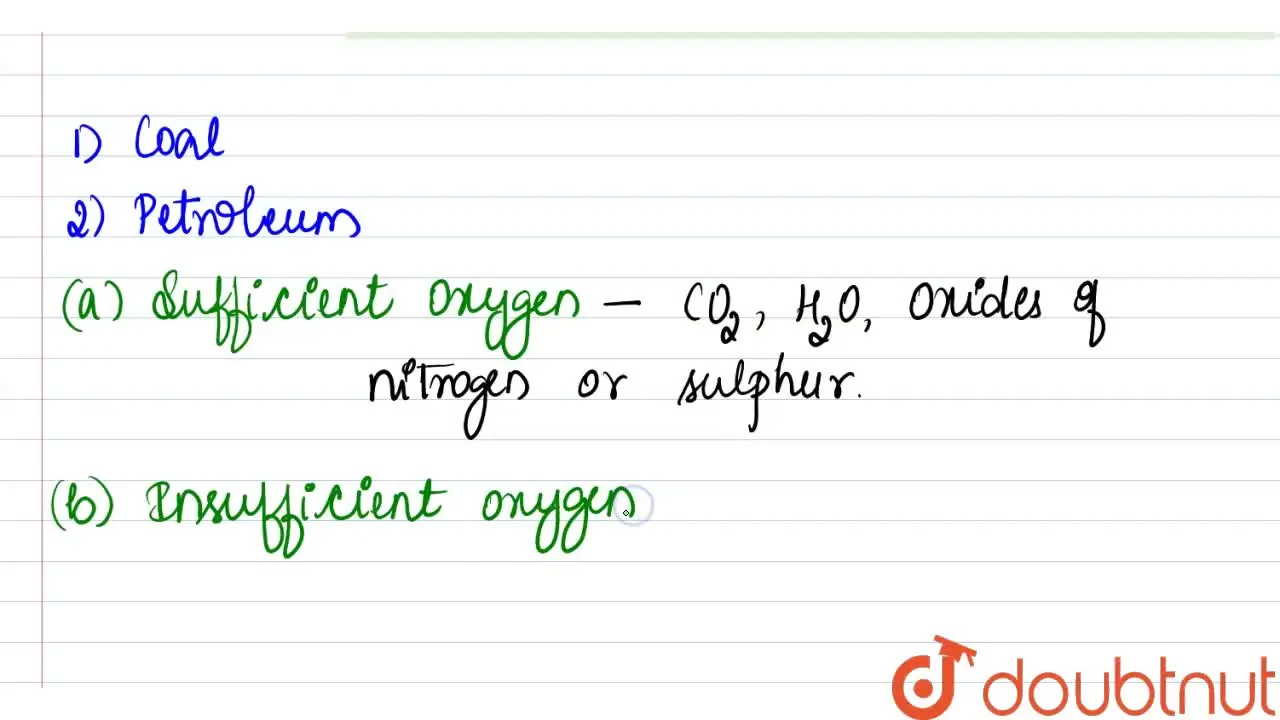 1) Coal
2) Petroleum
(a) Sufficient Oxygen - CO2, H2O, Oxides of
nitrogen or sulphur.
(b) Insufficient oxygen
doubtnut